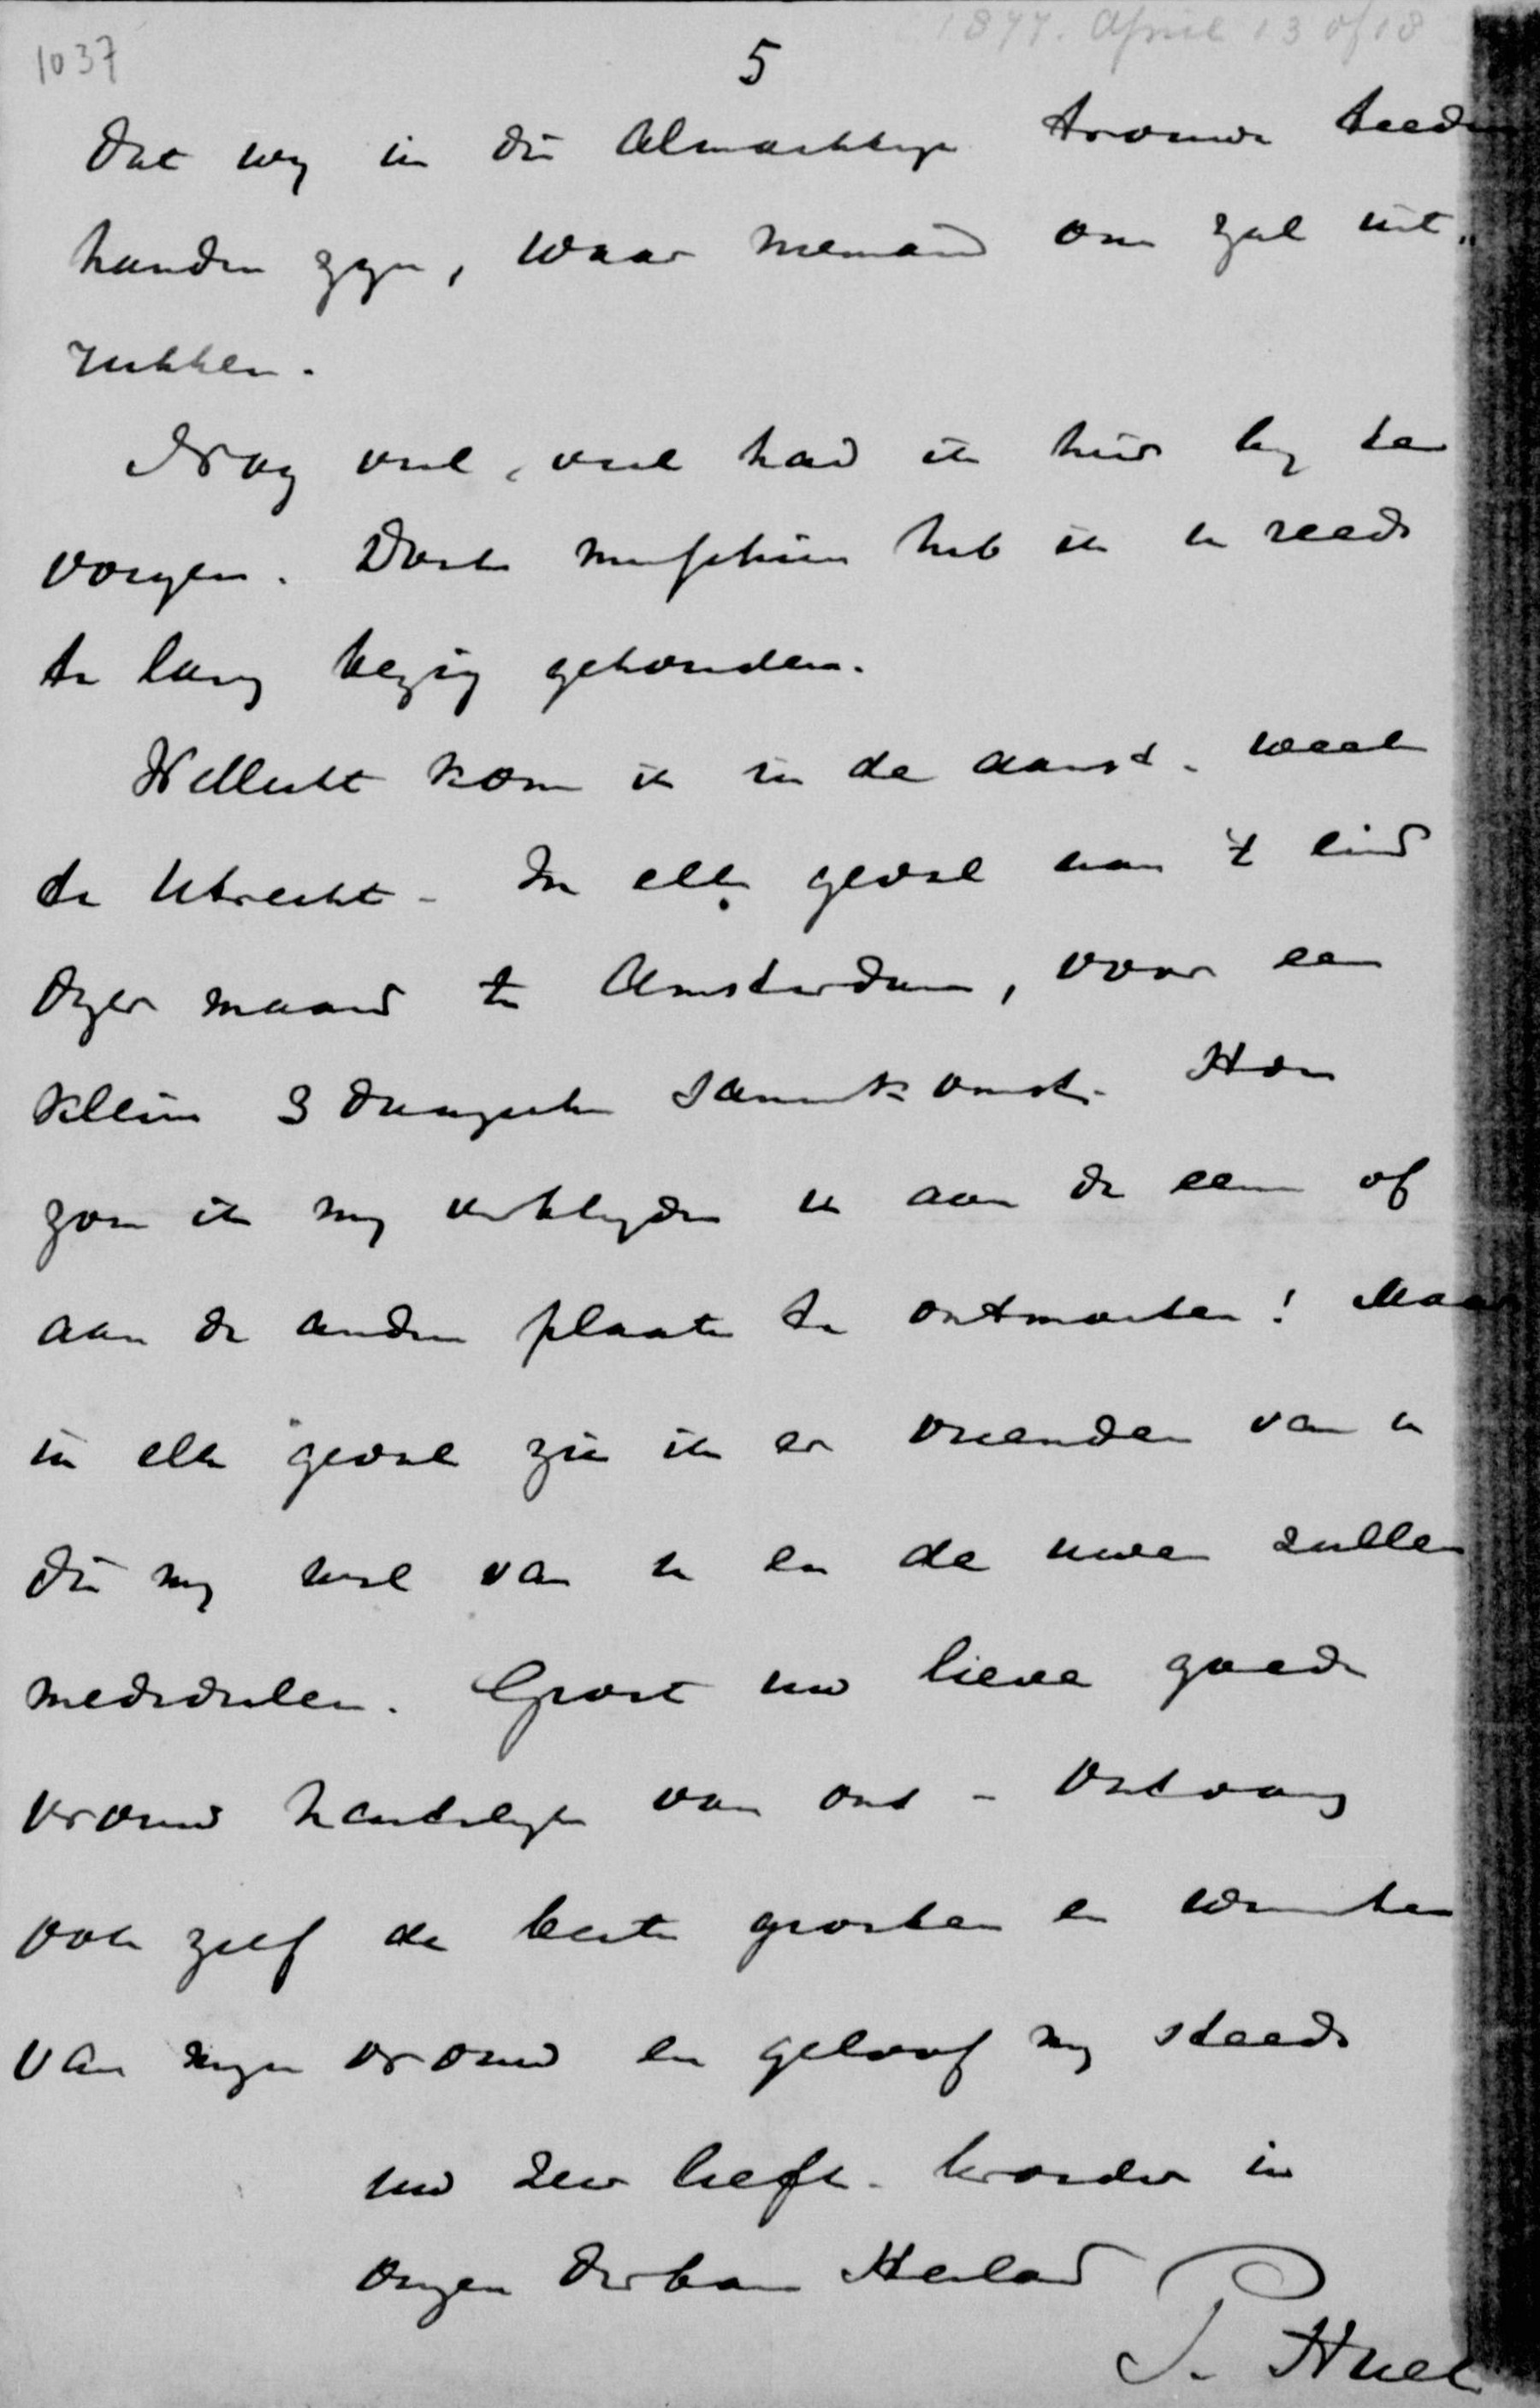 1877. April 13 of 18
1037
5
dat wy in die Almachtige trouwe teedre
handen zyn, waar niemand ons zal uit„
rukken.
Nog veel, veel had ik hier by te
voegen. Doch misschien heb ik u reeds
te lang bezig gehouden.
Wellicht kom ik in de aanst. week
te Utrecht - In elk geval aan 't eind
dezer maand te Amsterdam, voor een
kleine 3 daagsche samenkomst. Hoe
zou ik my verblyden u aan de eene of
aan de andere plaats te ontmoeten! Maar
in elk geval zie ik er vrienden van u
die my wel van u en de uwen zullen
mededeelen. Groet uw lieve goede
vrouw hartelyk van ons - Ontvang
ook zelf de beste groeten en wenschen
van myne vrouw en geloof my steeds
uw zeer liefh. broeder in
onzen dierbaren Heiland
P. Huet